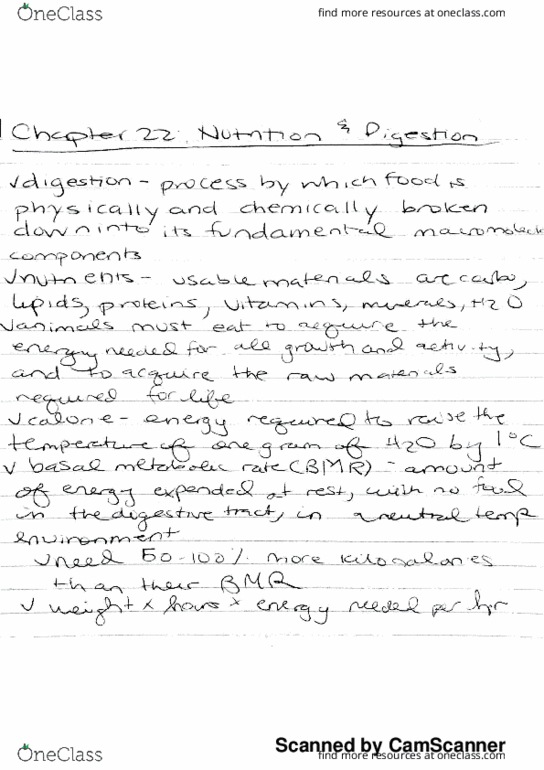 OneClass
find more resources at oneclass.com
Chapter 22: Nutrition & Digestion
√digestion - process by which food is
physically and chemically broken
down into its fundamental macromolecule
components
√nutrients - usable materials are carbo,
lipids, proteins, vitamins, minerals, H2O
√animals must eat to acquire the
energy needed for all growth and activity,
and to acquire the raw materials
required for life
√calorie - energy required to raise the
temperature of one gram of H2O by 1°C
√ basal metabolic rate (BMR) - amount
of energy expended at rest, with no food
in the digestive tract, in a neutral temp
environment
√need 50-100% more kilocalories
than their BMR
√ weight x hours x energy needed per hr
Scanned by CamScanner
OneClass
find more resources at oneclass.com